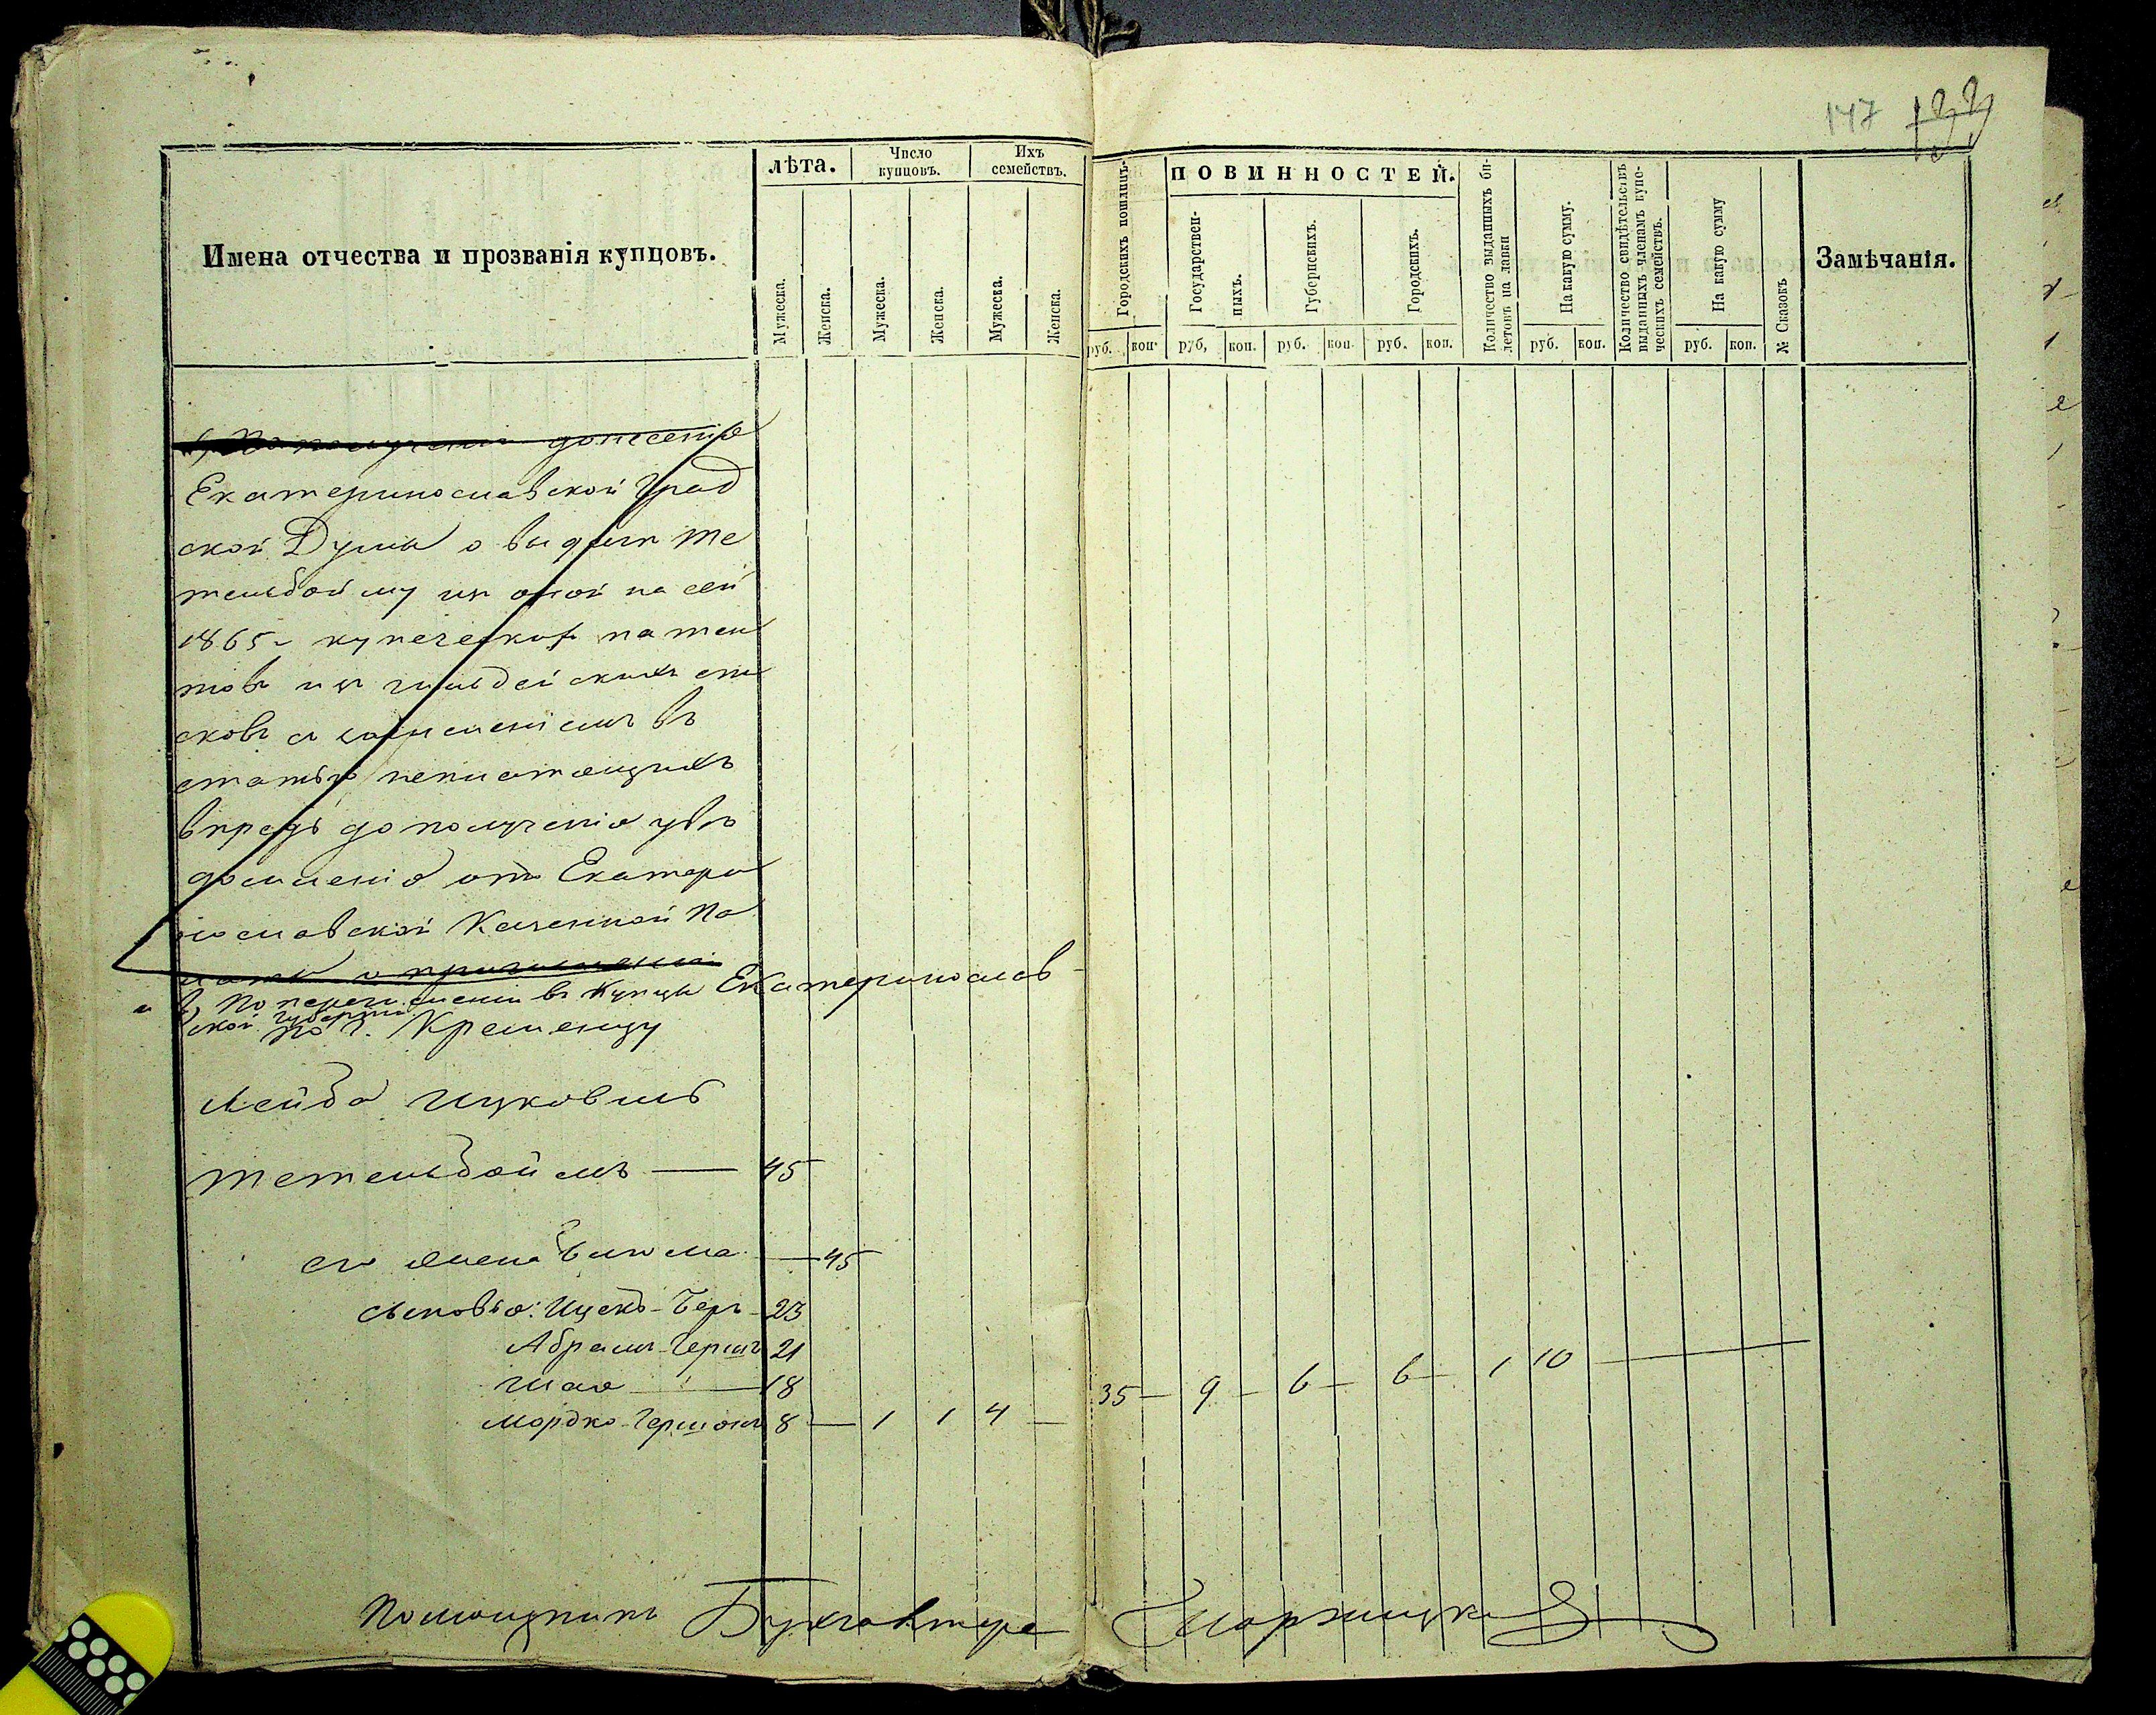 147 122
Имена отчества и прозванія купцовъ.
лѣта.
Мужеска.
Женска.
Число купцовъ.
Мужеска.
Женска.
Ихъ семействъ.
Мужеска.
Женска.
Городскихъ пошлинъ.
руб. коп.
ПОВИННОСТЕЙ.
Государственныхъ.
руб, коп.
Губернскихъ.
руб. коп.
Городскихъ.
руб. коп.
Количество выданныхъ би-
летовъ на лавки
На какую сумму.
руб. коп.
Количество свидѣтельствъ
выданныхъ членамъ купе-
ческихъ семействъ.
На какую сумму
руб. коп.
№ Сказокъ
Замѣчанія.
По полученіи донесенія
Екатеринославской Град
ской Думы о выдачи Те
тельбойму изъ оной на сей
1865 купеческ патен
товъ изъ гильдейскихъ спи
сковъ съ
статью неплатящихъ
впредь до полученія увѣ
домленія отъ Екатери
нославской Казенной Па
латы о причисленіи
По перечисленіи въ купцы Екатеринослав
ской губерніи
по г. Кременцу
Лейба Ицковичъ
Тетельбоймъ — 45
его жена — 45
сыновья: Ицекъ-Беръ 23
Абрамъ-Гершъ 21
Шая — 18
Мордко-Гершонъ 8 — 1 1 4 — 35 — 9 — 6 — 6 — 1 10 —
Помощникъ Бухгалтера